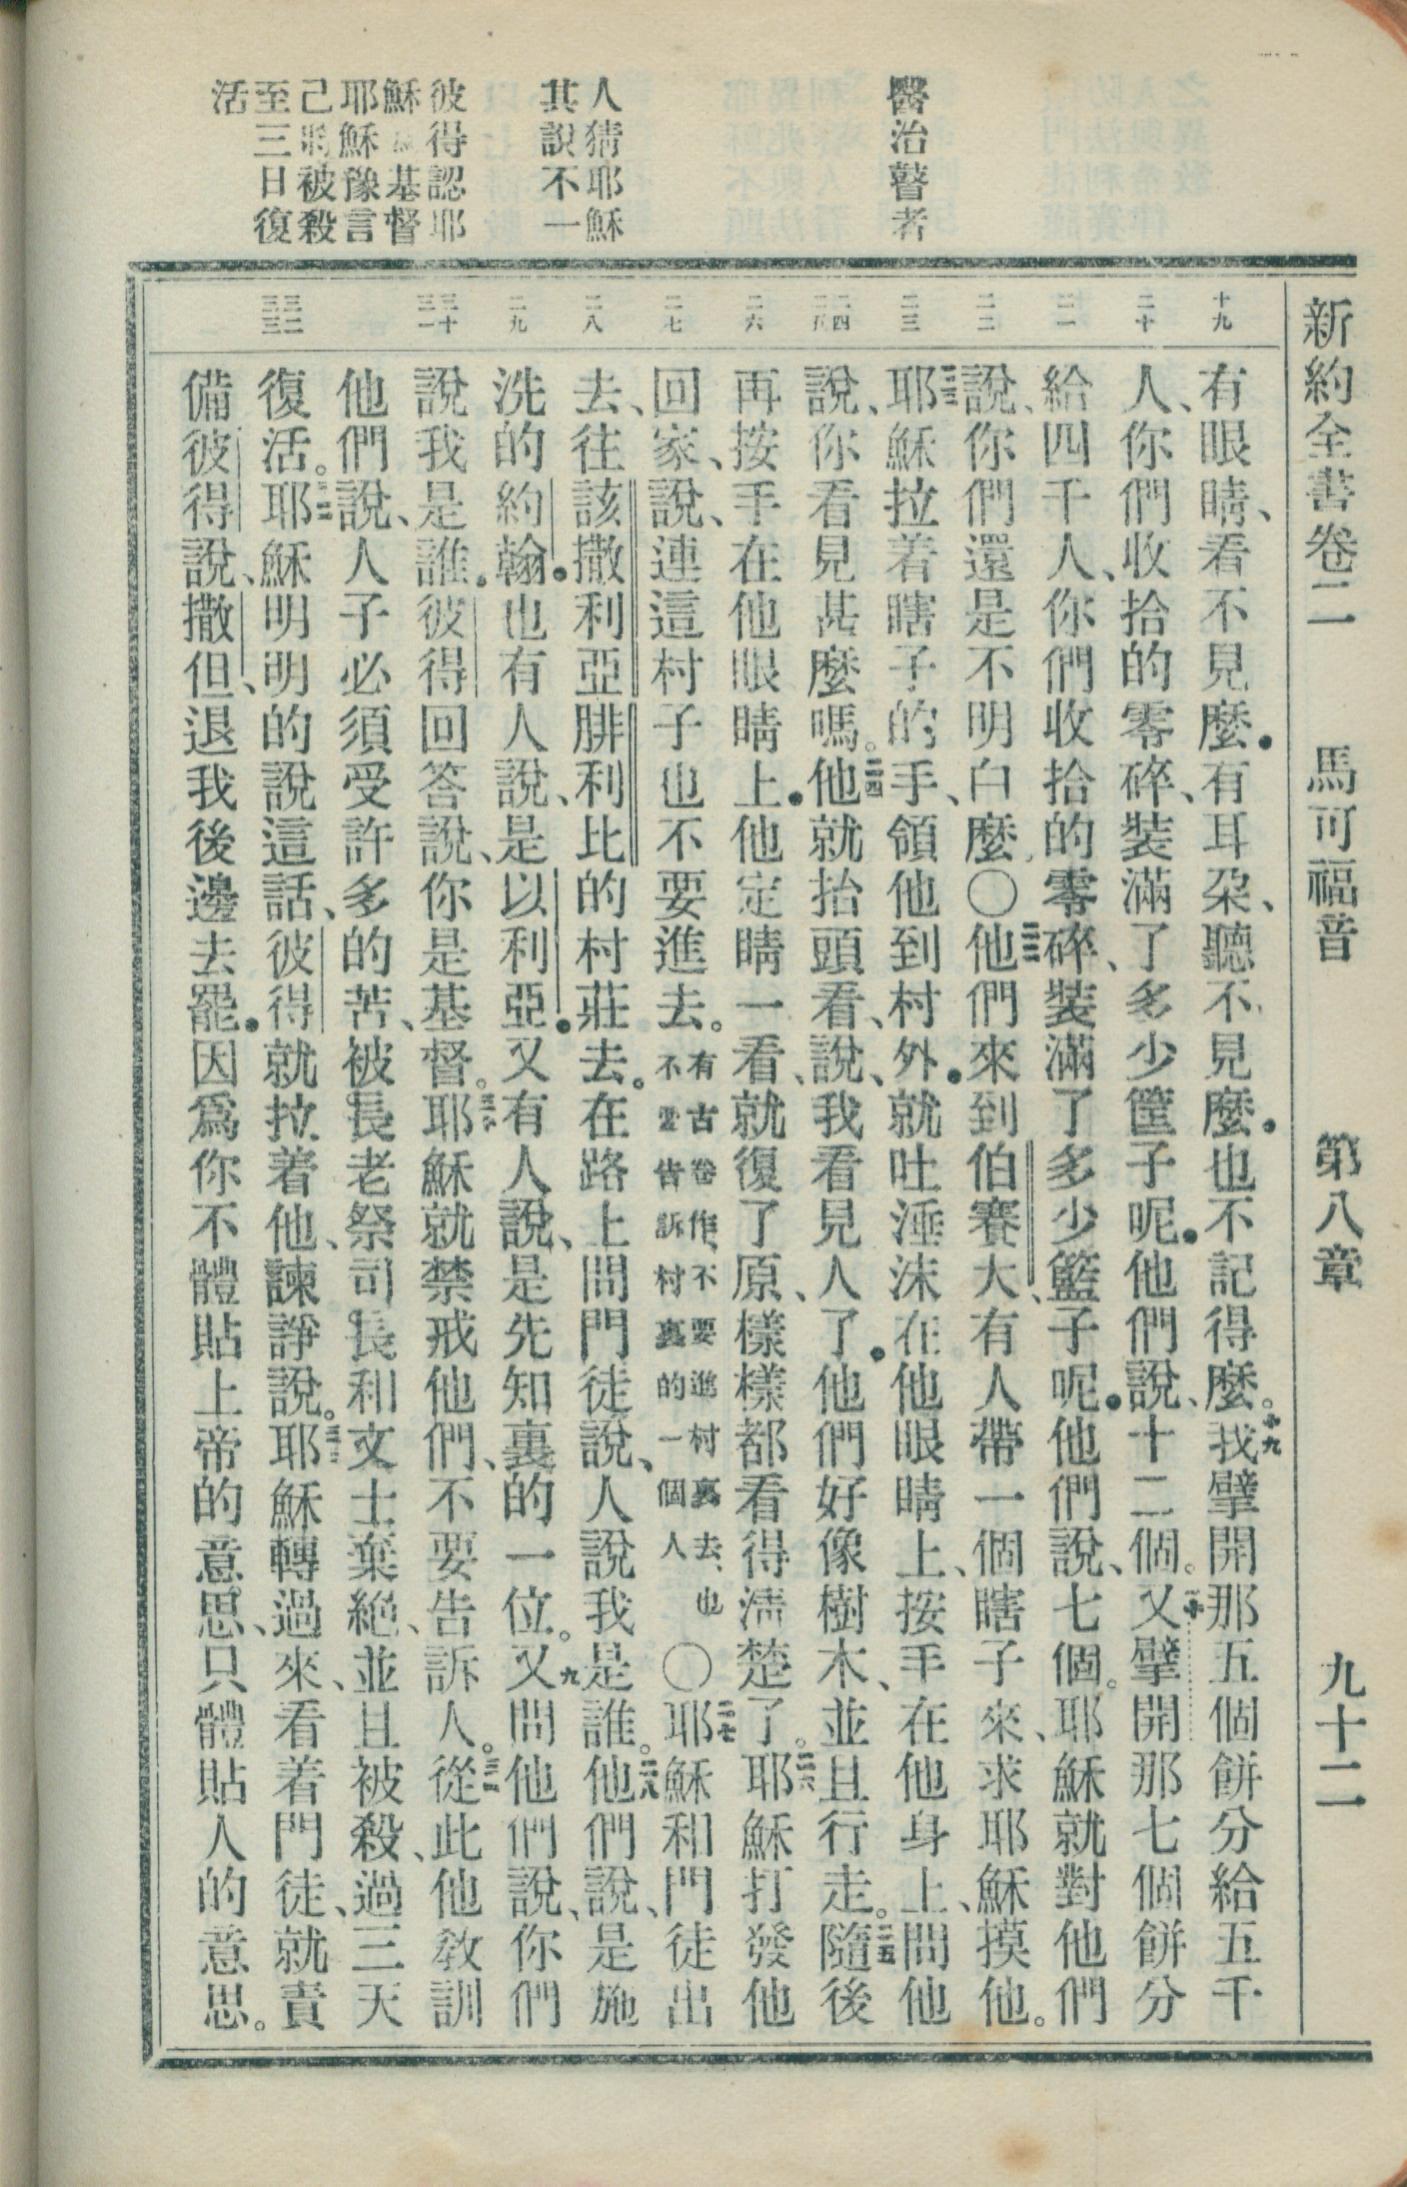 新約全書卷二　馬可福音　第八章　九十二
醫治瞽者
人猜耶穌
其說不一
彼得認耶
穌為基督
耶穌豫言
己將被殺
至三日復
活
十九
二十
二一
二二
二三
二四
二五
二六
二七
二八
二九
三十
三一
三二
三三
有眼睛、看不見麼．有耳朶、聽不見麼．也不記得麼。十九我擘開那五個餅分給五千
人、你們收拾的零碎、裝滿了多少筐子呢．他們說、十二個。二十又擘開那七個餅分
給四千人、你們收拾的零碎、裝滿了多少籃子呢．他們說、七個。耶穌就對他們
說、你們還是不明白麼．○二二他們來到伯賽大、有人帶一個瞎子來、求耶穌摸他。
二三耶穌拉着瞎子的手、領他到村外．就吐唾沫在他眼睛上、按手在他身上、問他
說、你看見甚麼嗎。二四他就抬頭看、說、我看見人了．他們好像樹木、並且行走。二五隨後
再按手在他眼睛上．他定睛一看、就復了原、樣樣都看得清楚了。二六耶穌打發他
回家、說、連這村子也不要進去。有古卷作、不要進村裏去、也不要告訴村裏的一個人○二七耶穌和門徒出
去、往該撒利亞腓利比的村莊去。在路上問門徒說、人說我是誰。二八他們說、是施
洗的約翰．也有人說、是以利亞．又有人說、是先知裏的一位。九又問他們說、你們
說我是誰．彼得回答說、你是基督。三十耶穌就禁戒他們、不要告訴人。三一從此他教訓
他們說、人子必須受許多的苦、被長老祭司長和文士棄絕、並且被殺、過三天
復活。三二耶穌明明的說這話、彼得就拉着他、諫諍說。三三耶穌轉過來、看着門徒、就責
備彼得說、撒但、退我後邊去罷．因爲你不體貼上帝的意思、只體貼人的意思。